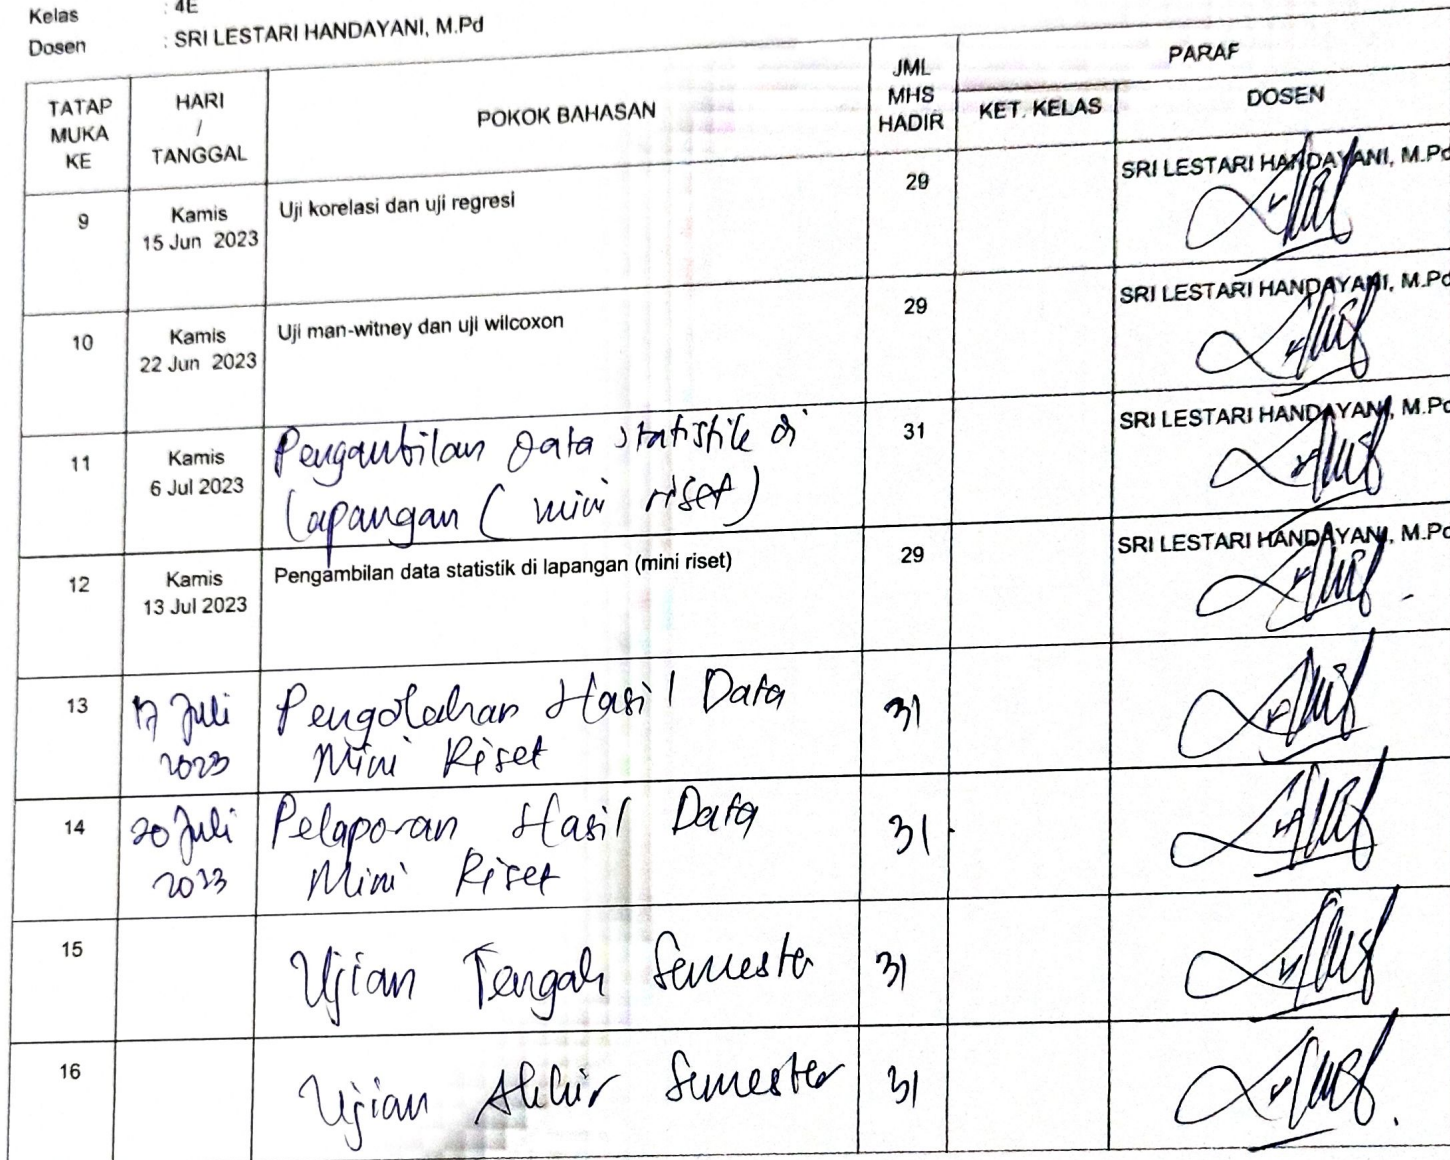 Kelas : 4E
Dosen : SRI LESTARI HANDAYANI, M.Pd
TATAP MUKA KE
HARI / TANGGAL
POKOK BAHASAN
JML MHS HADIR
PARAF
KET. KELAS
DOSEN
9
Kamis
15 Jun 2023
Uji korelasi dan uji regresi
29
SRI LESTARI HANDAYANI, M.Pd
10
Kamis
22 Jun 2023
Uji man-witney dan uji wilcoxon
29
SRI LESTARI HANDAYANI, M.Pd
11
Kamis
6 Jul 2023
Pengambilan data statistik di
lapangan ( mini riset)
31
SRI LESTARI HANDAYANI, M.Pd
12
Kamis
13 Jul 2023
Pengambilan data statistik di lapangan (mini riset)
29
SRI LESTARI HANDAYANI, M.Pd
13
17 Juli
2023
Pengolahan Hasil Data
Mini Riset
31
14
20 Juli
2023
Pelaporan Hasil Data
Mini Riset
31
15
Ujian Tengah Semester
31
16
Ujian Akhir Semester
31